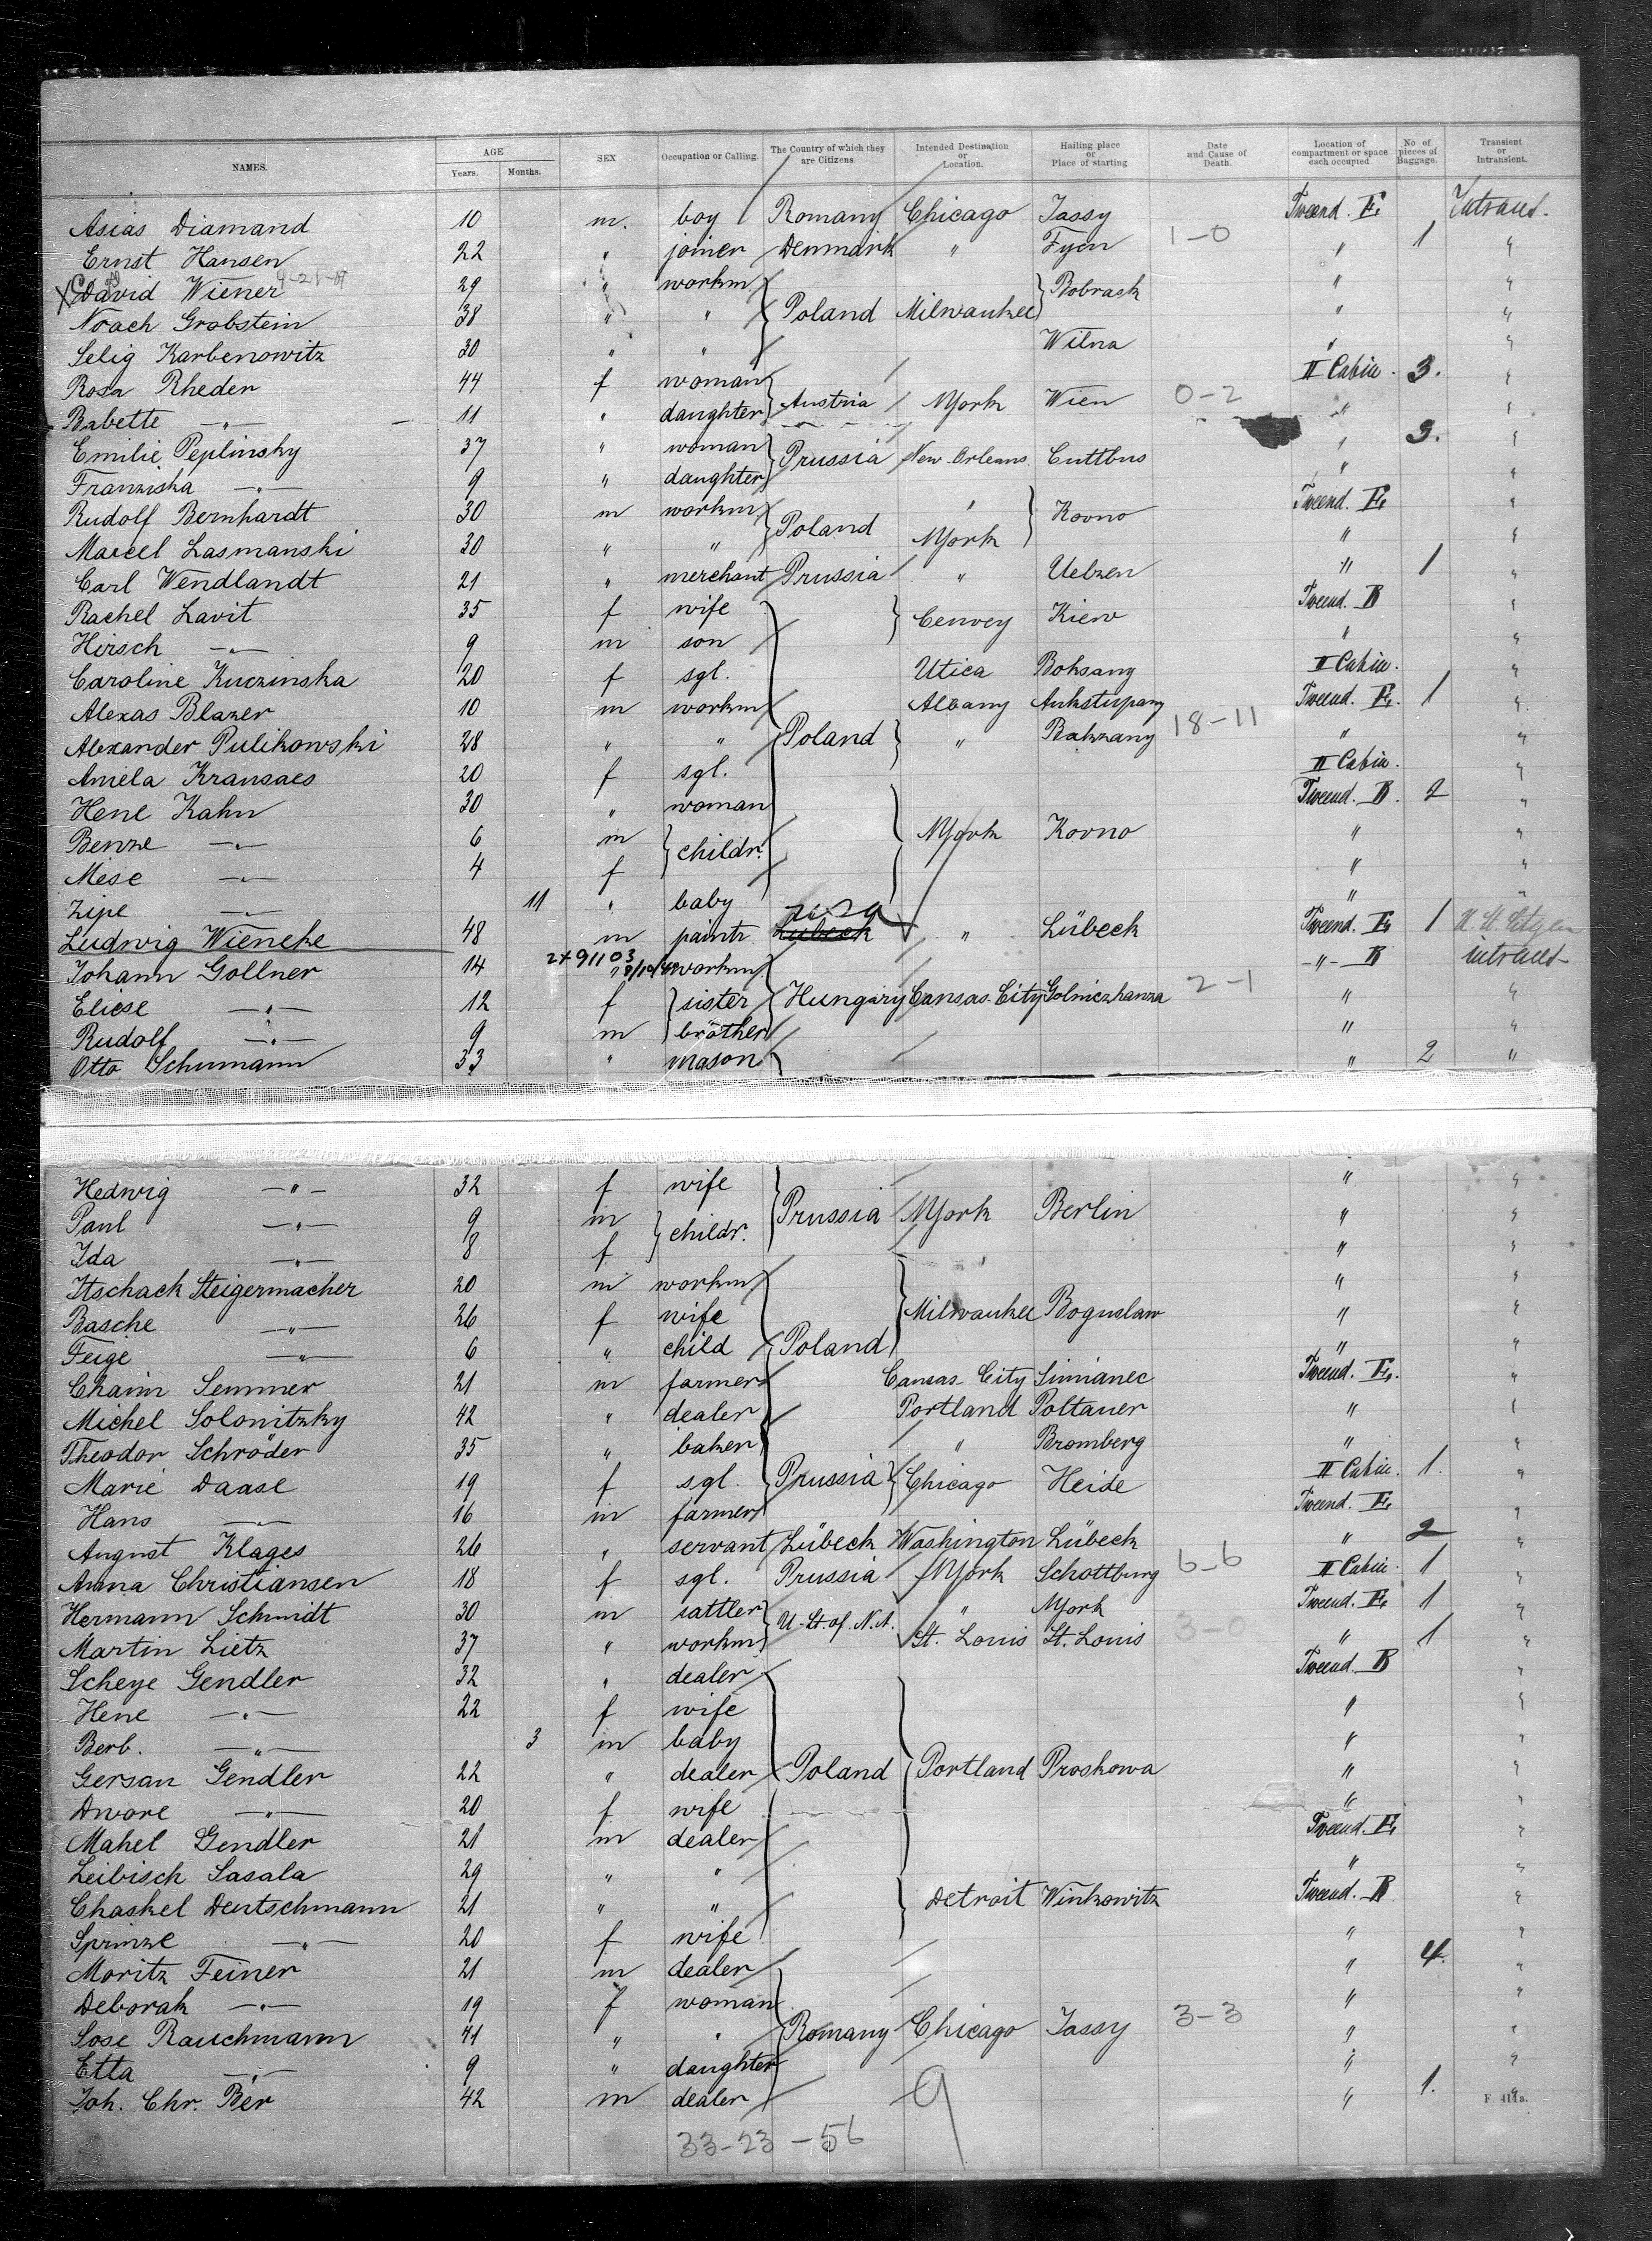 NAMES. AGE Years. Months. SEX Occupation or Calling. The Country of which they are Citizens Intended Destination or Location. Hailing place or Place of starting Date and Cause of Death. Location of compartment or space each occupied No of pieces of Baggage. Transient or Intransient.
Asias Diamand 10 m. boy Romany Chicago Jassy Tweend. E,
Ernst Hansen 22 " joiner Denmark " Fyen 1-0 " 1 "
David Wiener 29 " workm Bobrask " "
Noach Grobstein 38 " " Poland Milwaukee " "
Selig Karbenowitz 30 " " Wilna " "
Rosa Rheder 44 f woman II Cabin. 3. "
Babette -"- 11 " daughter Austria NYork Wien 0-2 " "
Emilie Peplinsky 37 " woman Prussia New-Orleans Cuttbus " 3. "
Franziska -"- 9 " daughter " "
Rudolf Bernhardt 30 m workm " Kovno Tweend. E, "
Marcel Lasmanski 30 " " Poland NYork " "
Carl Wendlandt 21 " merchant Prussia " Uelzen " 1 "
Rachel Lavit 35 f wife Kiew Tweend. B "
Hirsch -"- 9 m son " "
Caroline Kuczinska 20 f sgl. Utica Boksany II Cabin. "
Alexas Blazer 10 m workm Albany Aukstupany Tweend. E, 1 "
Alexander Pulikowski 28 " " Poland " Bakzany 18-11 " "
Aniela Kransaes 20 f sgl. II Cabin. "
Hene Kahn 30 " woman Tweend. B. 2 "
Benze -"- 6 m childr. NYork Kovno " "
Mese -"- 4 f " "
Zipe -"- 11 " baby " "
Ludwig Wieneke 48 m paintr Lübeck " Lübeck Tweend. E, 1
Johann Gollner 14 2x91103 workm -"- B
Eliese -"- 12 f sister Hungary Cansas-City Golniczhanza 2-1 " "
Rudolf -"- 9 m brother " "
Otto Schumann 33 " mason " 2 "
Hedwig -"- 32 f wife " "
Paul -"- 9 m childr. Prussia NYork Berlin " "
Ida -"- 8 f " "
Itschack Steigermacher 20 m workm " "
Basche -"- 26 f wife Milwaukee Boguslaw " "
Feige -"- 6 " child Poland " "
Chaim Semmer 21 m farmer Cansas City Simianec Tweend. E, "
Michel Solonitzky 42 " dealer Portland Poltauer " "
Theodor Schröder 35 " baker " Bromberg " "
Marie Daase 19 f sgl. Prussia Chicago Heide II Cabin. 1. "
Hans -"- 16 m farmer Tweend. E, "
August Klages 26 " servant Lübeck Washington Lübeck " 2 "
Anna Christiansen 18 f sgl. Prussia NYork Schottburg 6-6 II Cabin. 1 "
Hermann Schmidt 30 m sattler U-St. of. N.A. " NYork Tweend. E, 1 "
Martin Lietz 37 " workm St. Louis St. Louis 3-0 " 1 "
Scheye Gendler 32 " dealer Tweend. B "
Hene -"- 22 f wife " "
Berb. -"- 3 m baby " "
Gersan Gendler 22 " dealer Poland Portland Proskowa " "
Dwore -"- 20 f wife " "
Mahel Gendler 21 m dealer Tweend. E, "
Leibisch Sasala 29 " " " "
Chaskel Deutschmann 21 " " Detroit Winkowitz Tweend. B "
Sprinze -"- 20 f wife " "
Moritz Feiner 21 m dealer " 4. "
Deborah -"- 19 f woman " "
Sose Rauchmann 41 " " Romany Chicago Jassy 3-3 " "
Etta -"- 9 " daughter " "
Joh. Chr. Ber 42 m dealer 9 " 1. "
F. 411a.
33-23-56